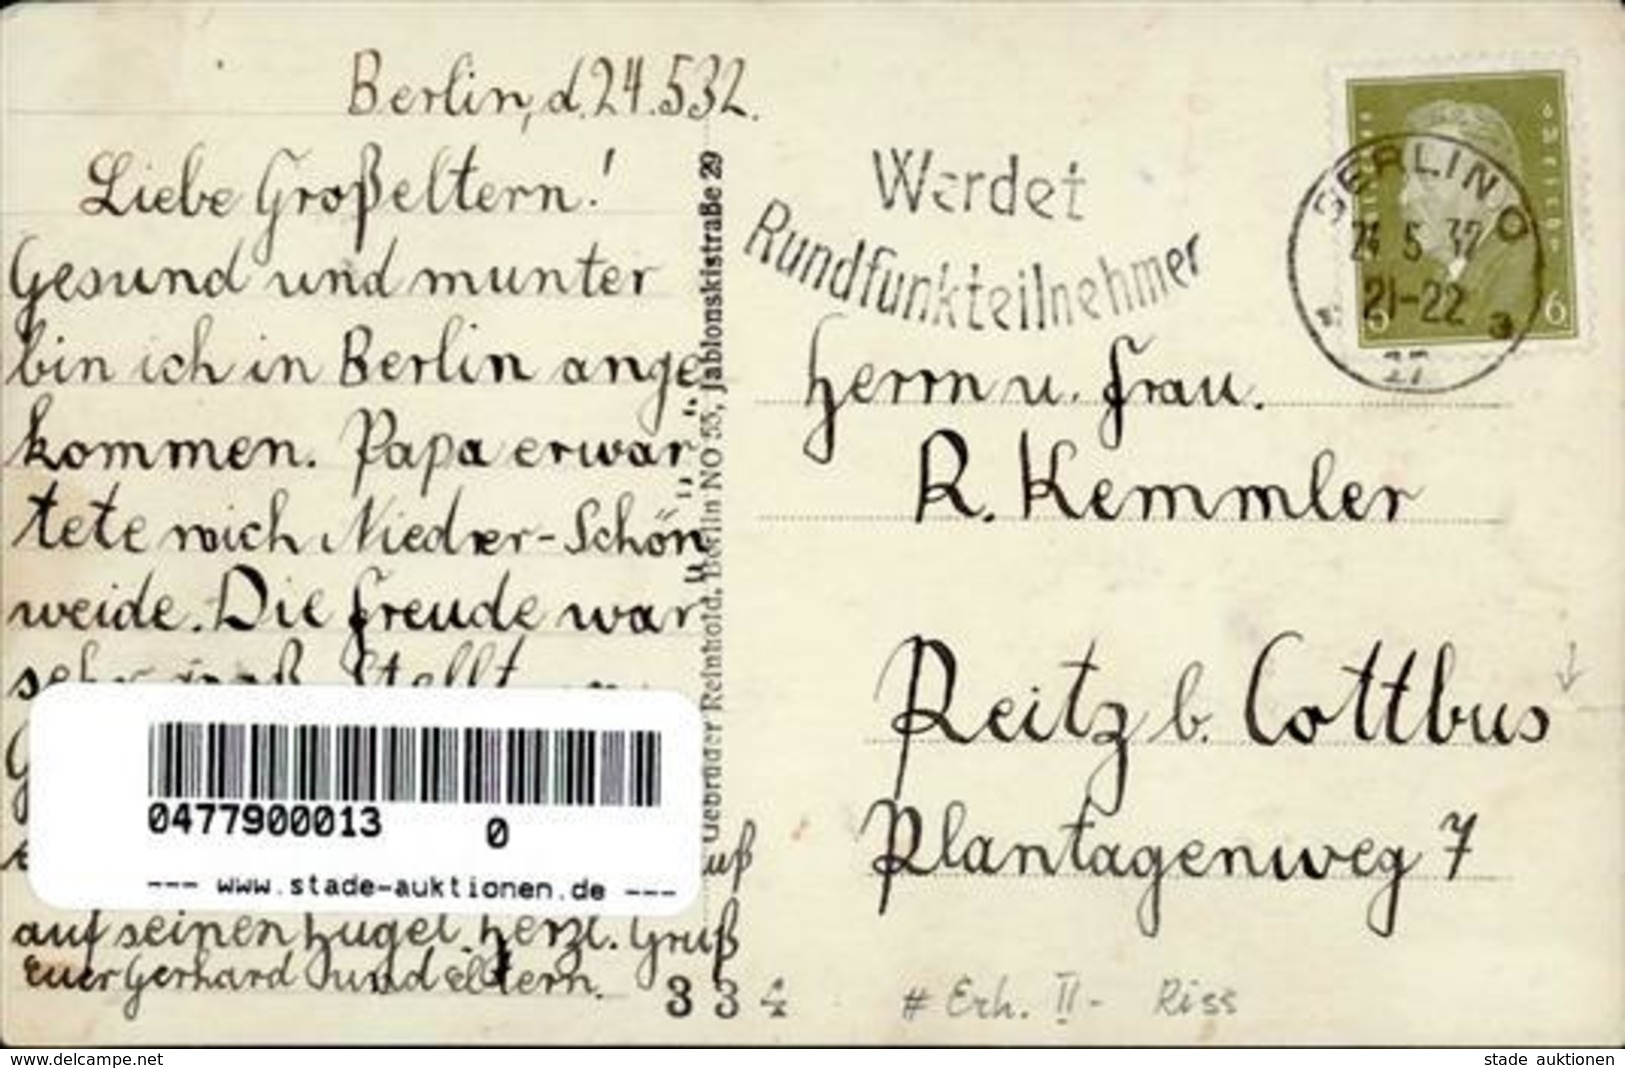 Berlin, d. 24.5.32.
Liebe Großeltern!
Gesund und munter
bin ich in Berlin ange
kommen. Papa erwar
tete mich Nieder-Schön
weide. Die Freude war
sehr groß. Stellt
uß
auf seinen Hügel. Herzl. Gruß
Euer Gerhard und Eltern.
334
0477900013 0
--- www.stade-auktionen.de ---
Gebrüder Reinhold, Berlin NO 55, Jablonskistraße 29
Werdet
Rundfunkteilnehmer
BERLIN O
24 5 32
21-22
a
27
6
Herrn u. Frau.
R. Kemmler
Reitz b. Cottbus
Plantagenweg 7
# Erh. II- Riss
https://www.delcampe.net
stade auktionen